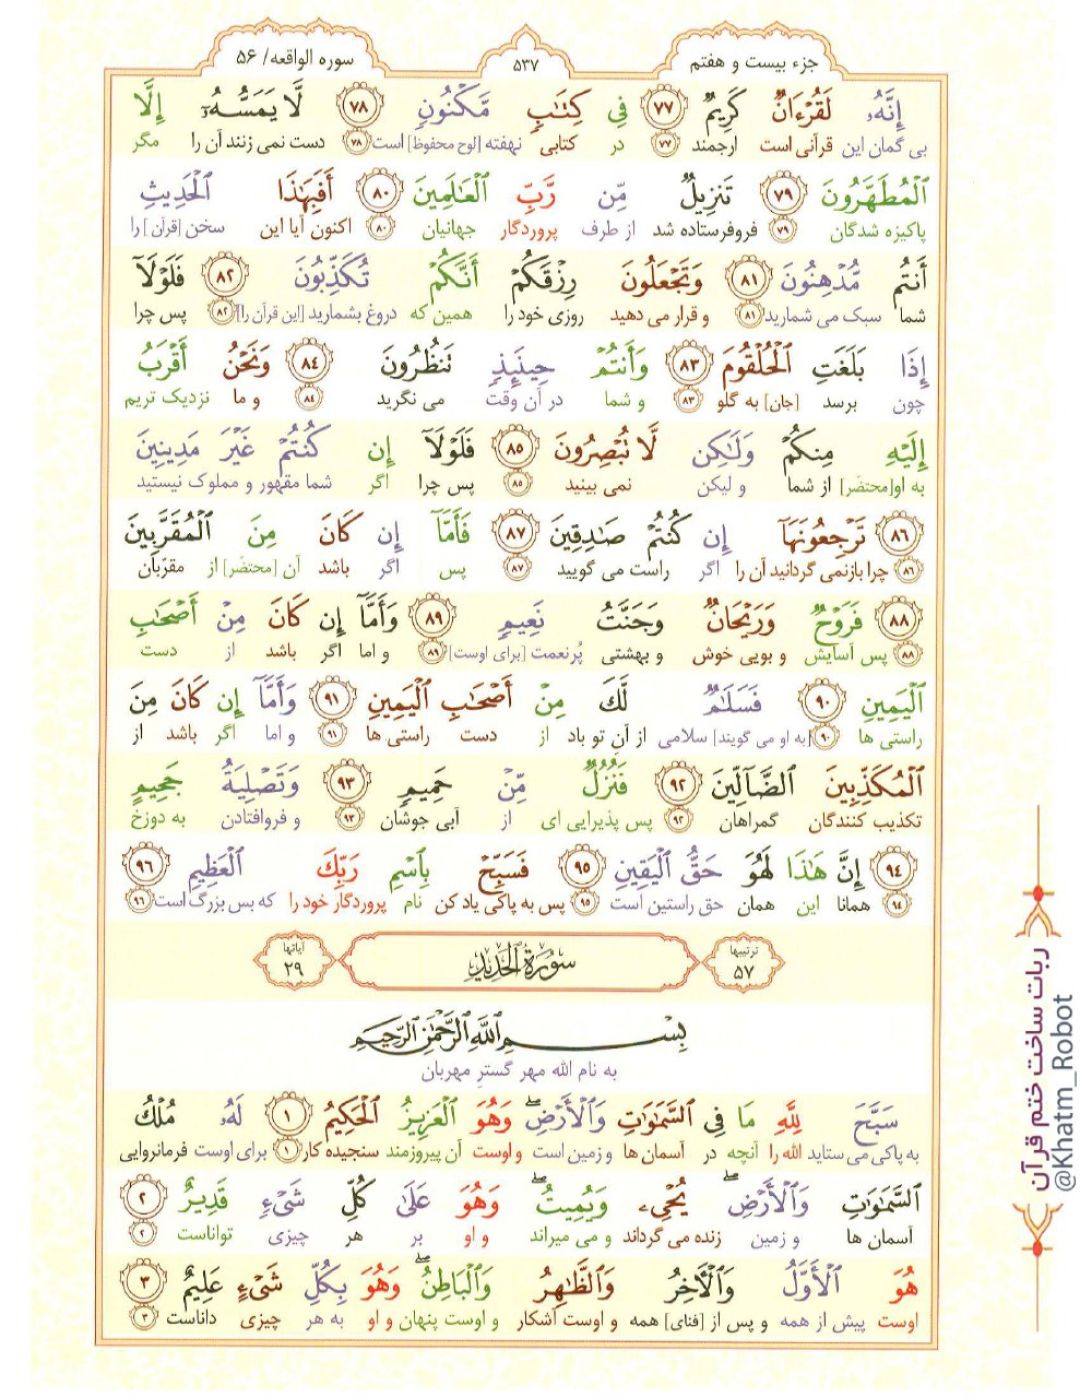 جزء بیست و هفتم
۵۳۷
سوره الواقعه/ ۵۶
إِنَّهُۥ لَقُرۡءَانٌ كَرِيمٌ ٧٧ فِي كِتَٰبٍ مَّكۡنُونٍ ٧٨ لَّا يَمَسُّهُۥٓ إِلَّا
بی گمان این قرآنی است ارجمند ۷۷ در کتابی نهفته [لوح محفوظ] است ۷۸ دست نمی زنند آن را مگر
ٱلۡمُطَهَّرُونَ ٧٩ تَنزِيلٌ مِّن رَّبِّ ٱلۡعَٰلَمِينَ ٨٠ أَفَبِهَٰذَا ٱلۡحَدِيثِ
پاکیزه شدگان ۷۹ فروفرستاده شد از طرف پروردگار جهانیان ۸۰ اکنون آیا این سخن [قرآن] را
أَنتُم مُّدۡهِنُونَ ٨١ وَتَجۡعَلُونَ رِزۡقَكُمۡ أَنَّكُمۡ تُكَذِّبُونَ ٨٢ فَلَوۡلَآ
شما سبک می شمارید ۸۱ و قرار می دهید روزی خود را همین که دروغ بشمارید [این قرآن را] ۸۲ پس چرا
إِذَا بَلَغَتِ ٱلۡحُلۡقُومَ ٨٣ وَأَنتُمۡ حِينَئِذٍ تَنظُرُونَ ٨٤ وَنَحۡنُ أَقۡرَبُ
چون برسد [جان] به گلو ۸۳ و شما در آن وقت می نگرید ۸۴ و ما نزدیک تریم
إِلَيۡهِ مِنكُمۡ وَلَٰكِن لَّا تُبۡصِرُونَ ٨٥ فَلَوۡلَآ إِن كُنتُمۡ غَيۡرَ مَدِينِينَ
به او[محتضَر] از شما و لیکن نمی بینید ۸۵ پس چرا اگر شما مقهور و مملوک نیستید
٨٦ تَرۡجِعُونَهَآ إِن كُنتُمۡ صَٰدِقِينَ ٨٧ فَأَمَّآ إِن كَانَ مِنَ ٱلۡمُقَرَّبِينَ
۸۶ چرا بازنمی گردانید آن را اگر راست می گویید ۸۷ پس اگر باشد آن [محتضَر] از مقرّبان
٨٨ فَرَوۡحٌ وَرَيۡحَانٌ وَجَنَّتُ نَعِيمٍ ٨٩ وَأَمَّآ إِن كَانَ مِنۡ أَصۡحَٰبِ
۸۸ پس آسایش و بویی خوش و بهشتی پُرنعمت [برای اوست] ۸۹ و اما اگر باشد از دست
ٱلۡيَمِينِ ٩٠ فَسَلَٰمٌ لَّكَ مِنۡ أَصۡحَٰبِ ٱلۡيَمِينِ ٩١ وَأَمَّآ إِن كَانَ مِنَ
راستی ها ۹۰ [به او می گویند] سلامی از آنِ تو باد از دست راستی ها ۹۱ و اما اگر باشد از
ٱلۡمُكَذِّبِينَ ٱلضَّآلِّينَ ٩٢ فَنُزُلٌ مِّنۡ حَمِيمٍ ٩٣ وَتَصۡلِيَةُ جَحِيمٍ
تکذیب کنندگان گمراهان ۹۲ پس پذیرایی ای از آبی جوشان ۹۳ و فروافتادن به دوزخ
٩٤ إِنَّ هَٰذَا لَهُوَ حَقُّ ٱلۡيَقِينِ ٩٥ فَسَبِّحۡ بِٱسۡمِ رَبِّكَ ٱلۡعَظِيمِ ٩٦
۹۴ همانا این همان حق راستین است ۹۵ پس به پاکی یاد کن نام پروردگار خود را که بس بزرگ است ۹۶
ترتيبها ۵۷
سُورَةُ الحَدِيد
آياتها ۲۹
بِسۡمِ ٱللَّهِ ٱلرَّحۡمَٰنِ ٱلرَّحِيمِ
به نام الله مهر گسترِ مهربان
سَبَّحَ لِلَّهِ مَا فِي ٱلسَّمَٰوَٰتِ وَٱلۡأَرۡضِۖ وَهُوَ ٱلۡعَزِيزُ ٱلۡحَكِيمُ ١ لَهُۥ مُلۡكُ
به پاکی می ستاید الله را آنچه در آسمان ها و زمین است و اوست آن پیروزمند سنجیده کار ۱ برای اوست فرمانروایی
ٱلسَّمَٰوَٰتِ وَٱلۡأَرۡضِۖ يُحۡيِۦ وَيُمِيتُۖ وَهُوَ عَلَىٰ كُلِّ شَيۡءٍ قَدِيرٌ ٢
آسمان ها و زمین زنده می گرداند و می میراند و او بر هر چیزی تواناست ۲
هُوَ ٱلۡأَوَّلُ وَٱلۡأٓخِرُ وَٱلظَّٰهِرُ وَٱلۡبَاطِنُۖ وَهُوَ بِكُلِّ شَيۡءٍ عَلِيمٌ ٣
اوست پیش از همه و پس از [فنای] همه و اوست آشکار و اوست پنهان و او به هر چیزی داناست ۳
ربات ساخت ختم قرآن
@Khatm_Robot